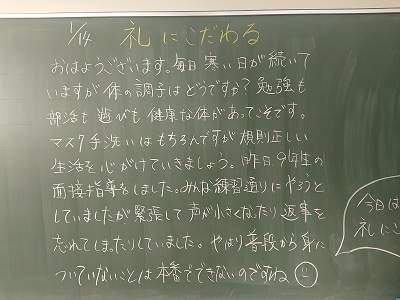 1/14 礼にこだわる
おはようございます。毎日寒い日が続いて
いますが体の調子はどうですか?勉強も
部活も遊びも健康な体があってこそです。
マスク手洗いはもちろんですが規則正しい
生活を心がけていきましょう。昨日、9年生の
面接指導をしました。みんな練習通りにやろうと
していましたが緊張して声が小さくなったり返事を
忘れてしまったりしていました。やはり普段から身に
ついていないことは本番でできないのですね
今日は
礼にこ